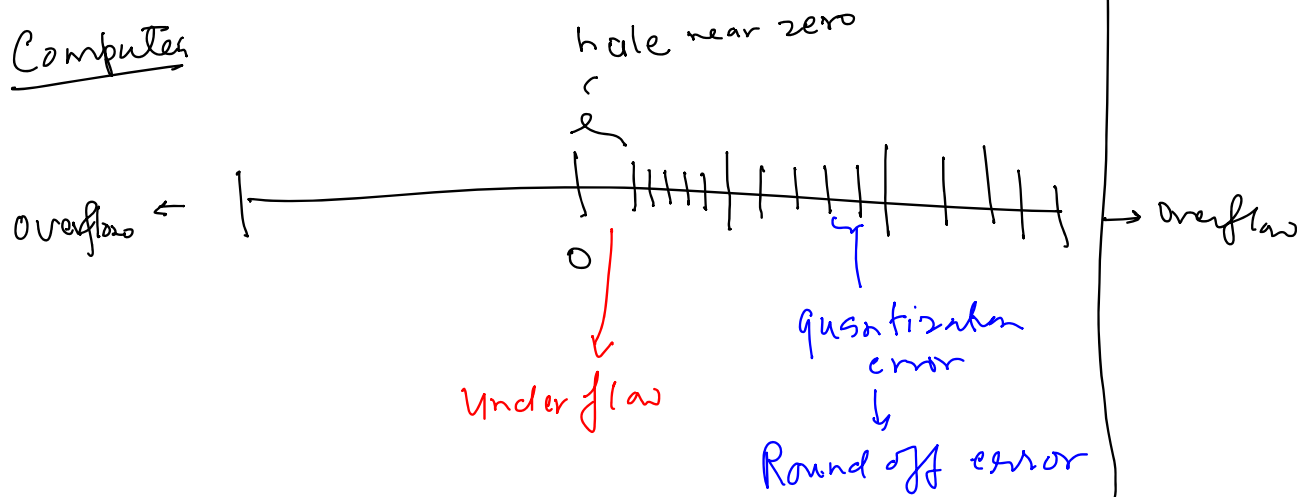 Computer
hole near zero
overflow
overflow
0
Underflow
quantization
error
Round off error